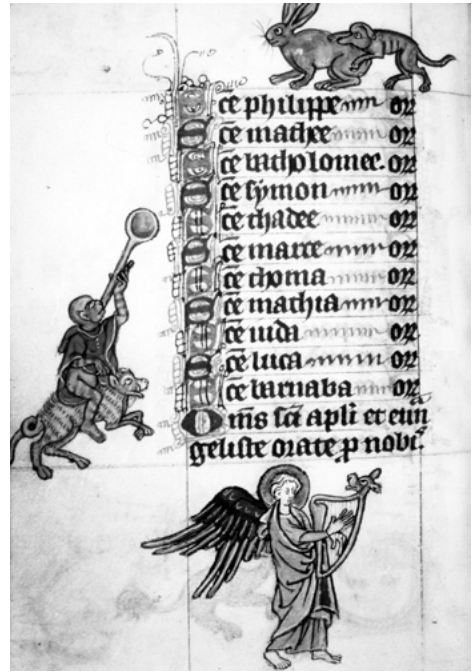 Sc̄e philippe or̄
Sc̄e mathee or̄
Sc̄e bartholomee. or̄
Sc̄e symon or̄
Sc̄e thadee or̄
Sc̄e marce or̄
Sc̄e thoma or̄
Sc̄e mathia or̄
Sc̄e iuda or̄
Sc̄e luca or̄
Sc̄e barnaba or̄
Om̄s sc̄i apl̄i et euan
geliste orate p nob̄